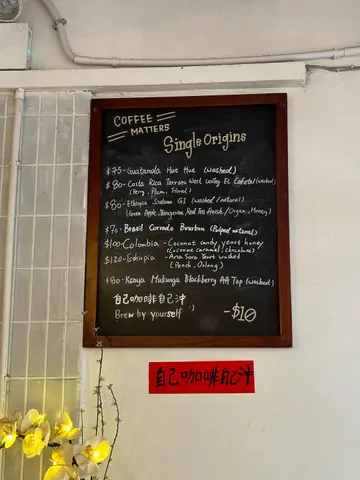 COFFEE
MATTERS
Single Origins
$75 - Guatamala Hue Hue (washed)
$80 - Costa Rica Tarrazu West Valley El Cafetal (washed)
(Berry, Plum, Floral)
$80 - Ethiopia Sidamo G1 (washed / natural)
(Green Apple, Tangerine, Red Tea finish / Organ, Honey)
$70 - Brasil Corrado Bourbon (Pulped natural)
$100 - Colombia - Coconut candy, yeast honey
(Coconut caramel, chocolate)
$120 - Ethiopia - Ana Sora Yeast washed
(Peach, Oolong)
$80 - Kenya Mukunga Blackberry AA Top (washed)
自己咖啡自己沖
Brew by yourself :) -$10
自己咖啡自己沖